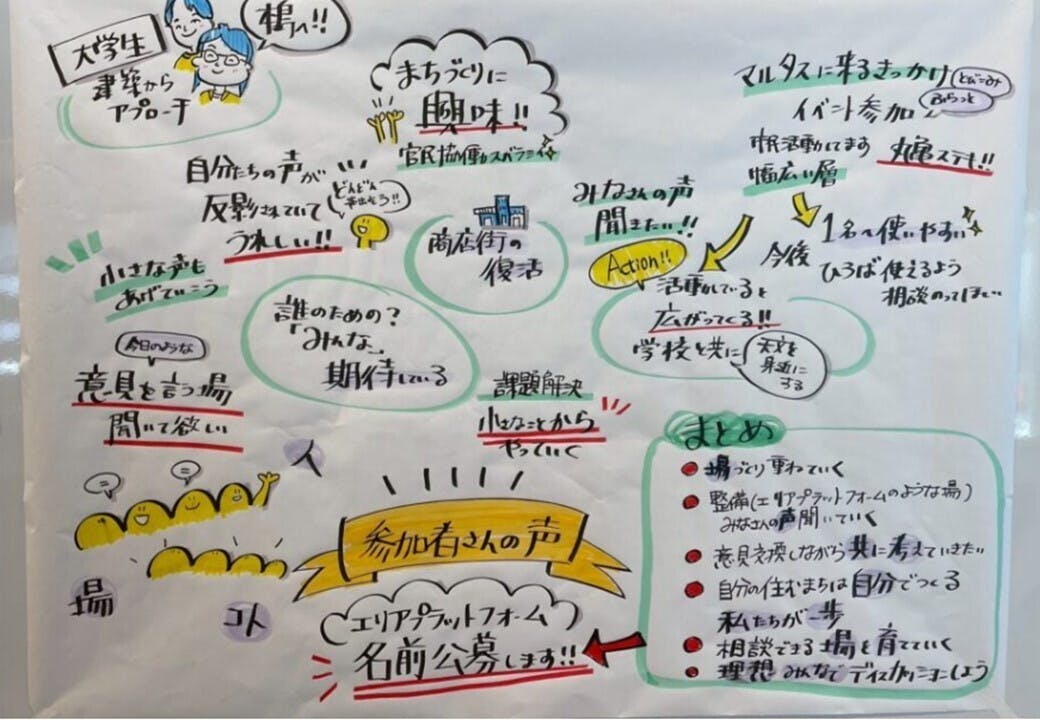 大学生
建築から
アプローチ
橋へ!!
まちづくりに
興味!!
官民協働がスバラシイ
自分たちの声が
反影されていて
うれしい!!
どんどん
小さな声も
あげていこう
今日のような
意見を言う場
開いて欲しい
誰のための?
「みんな」
期待している
商店街の
復活
課題解決
小さなことから
やっていく
みなさんの声
聞きたい!!
Action!!
活動していると
広がってくる!!
学校と共に
天文を
身近に
する
マルタスに来るきっかけ
とびこみ
ふらっと
イベント参加
市民活動してます
幅広い層
丸亀ステキ!!
今後
1名〜使いやすい
ひろば使えるよう
相談のってほしい
人
場
コト
参加者さんの声
エリアプラットフォーム
名前公募します!!
まとめ
場づくり重ねていく
整備(エリアプラットフォームのような場)
みなさんの声聞いていく
意見交換しながら共に考えていきたい
自分の住むまちは自分でつくる
私たちが一歩
相談できる場を育てていく
理想みんなでディスカッションしよう